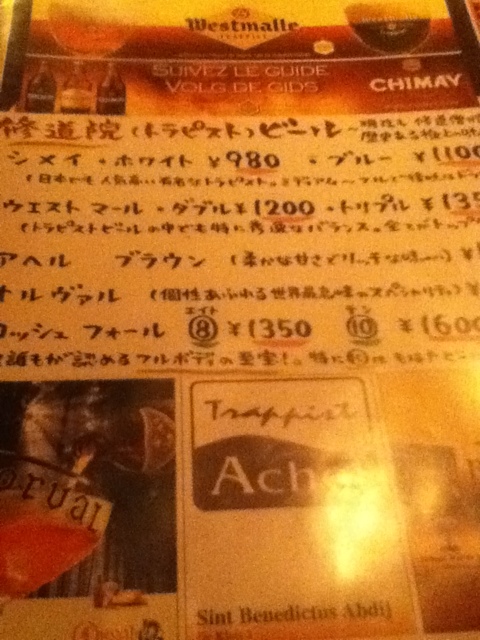 Westmalle
TRAPPIST
SUIVEZ LE GUIDE
VOLG DE GIDS
CHIMAY
修道院(トラピスト)ビール~
シメイ・ホワイト ¥980 ・ブルー ¥1100
ウエストマール・ダブル¥1200・トリプル ¥135
(トラピストビールの中でも特に秀逸なバランス。全てがトップ
アヘル ブラウン (柔かな甘さとリッチな味
オルヴァル (個性あふれる世界最高峰のスペシャリティ) ¥
ロッシュフォール エイト ⑧ ¥1350 テン ⑩ ¥1600
誰もが認めるフルボディの至宝!。特に⑩は
orval
Trappist
Ach
Sint Benedictus Abdij